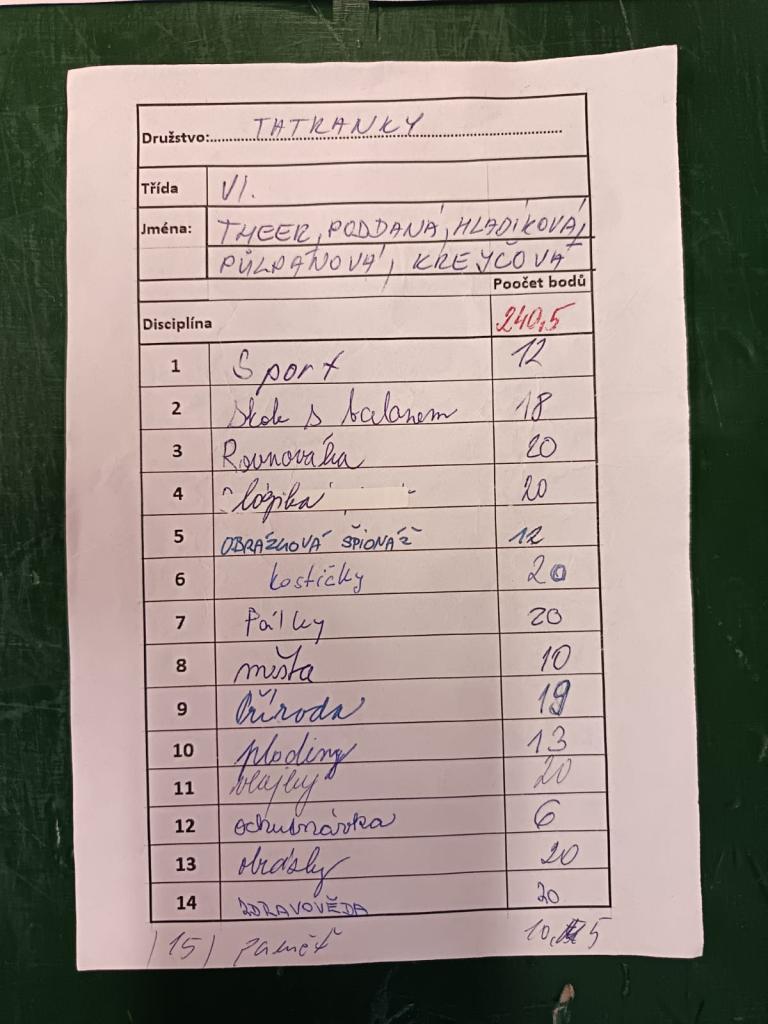 Družstvo: TATRANKY
Třída VI.
Jména: THEER, PODDANÁ, HLADÍKOVÁ,
PŮLPÁNOVÁ, KREJČOVÁ
Poočet bodů
Disciplína 240,5
1 Sport 12
2 Skok s balonem 18
3 Rovnováha 20
4 logika 20
5 OBRÁZKOVÁ ŠPIONÁŽ 12
6 kostičky 20
7 Pálky 20
8 místa 10
9 Příroda 19
10 plodiny 13
11 vlajky 20
12 ochutnávka 6
13 obrásky 20
14 ZDRAVOVĚDA 20
15 paměť 10,5